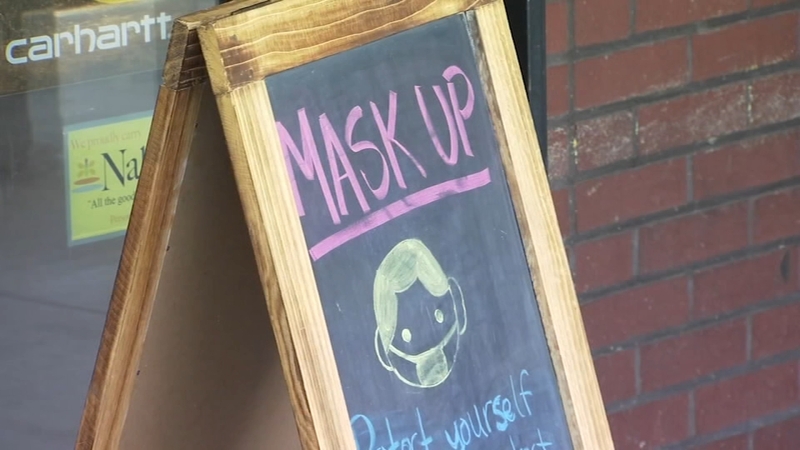 carhartt
We proudly carry
"All the goo
MASK UP
yourself